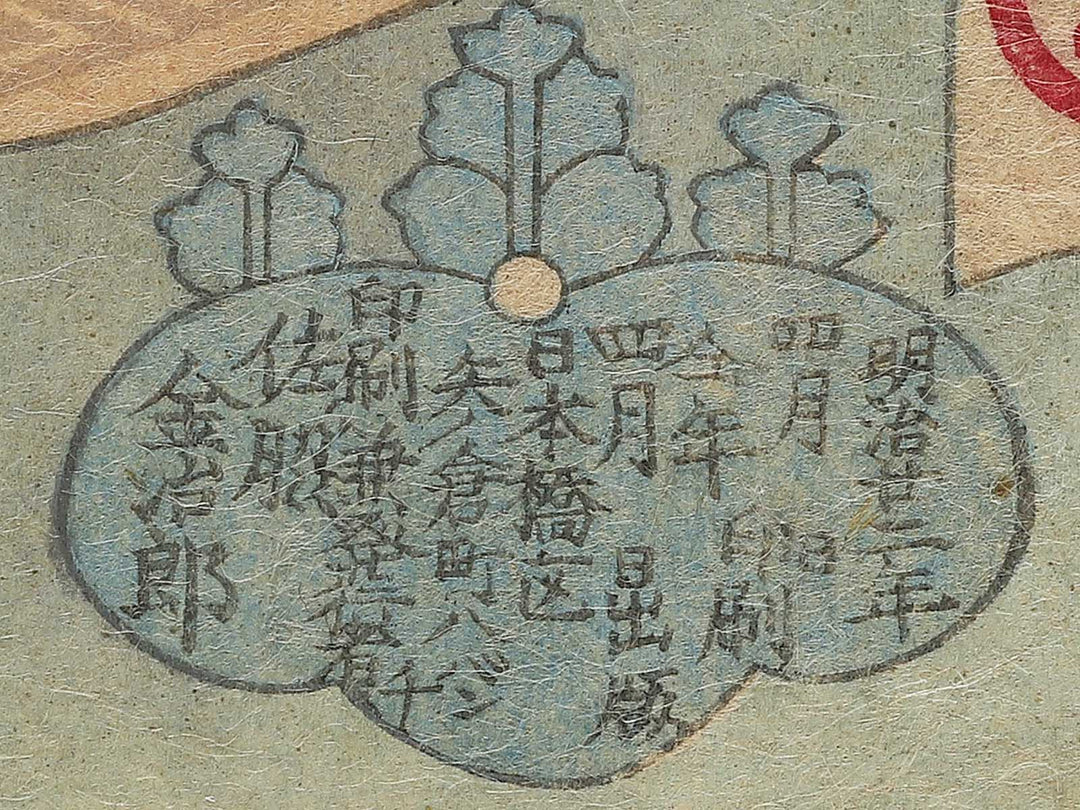 明治廿二年
四月 日
印刷
仝年
四月 日出版
日本橋区
矢ノ倉町八バンチ
印刷兼發行者
佐
金治郎